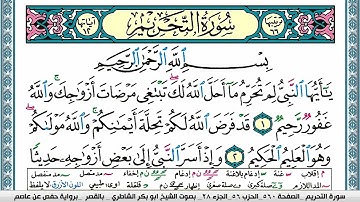 سُورَةُ التَّحْرِيمِ
بِسْمِ اللَّهِ الرَّحْمَٰنِ الرَّحِيمِ
يَٰٓأَيُّهَا ٱلنَّبِيُّ لِمَ تُحَرِّمُ مَآ أَحَلَّ ٱللَّهُ لَكَ تَبْتَغِي مَرْضَاتَ أَزْوَٰجِكَ وَٱللَّهُ
غَفُورٌ رَّحِيمٌ ١ قَدْ فَرَضَ ٱللَّهُ لَكُمْ تَحِلَّةَ أَيْمَٰنِكُمْ وَٱللَّهُ مَوْلَىٰكُمْ
وَهُوَ ٱلْعَلِيمُ ٱلْحَكِيمُ ٢ وَإِذْ أَسَرَّ ٱلنَّبِيُّ إِلَىٰ بَعْضِ أَزْوَٰجِهِۦ حَدِيثًا
سورة التحريم الصفحة ٥٦٠ الحزب ٥٦ الجزء ٢٨ بصوت الشيخ أبو بكر الشاطري بالقصر برواية حفص عن عاصم